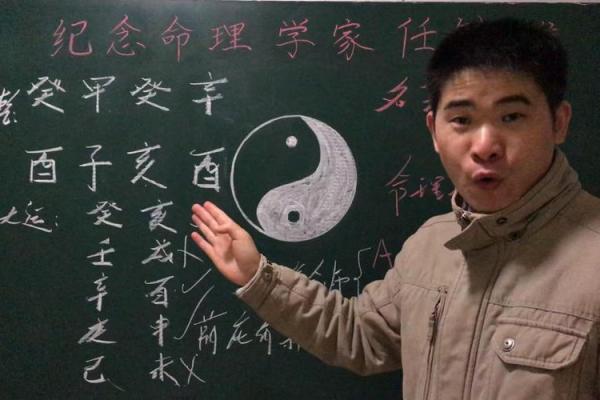 纪念命理学家任
癸 甲 癸 辛
名
酉 子 亥 酉
命理
大运: 癸 亥
壬 戌 X
A
辛 酉 ✓
庚 申
前
己 未 X